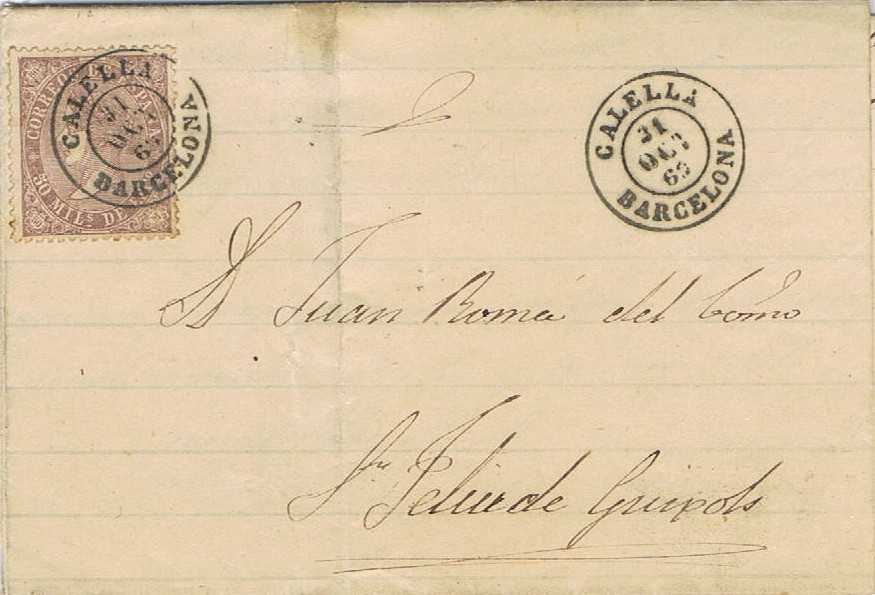 CORREOS DE ESPAÑA
50 MILS DE
CALELLA
31
OCT
69
BARCELONA
CALELLA
31
OCT
69
BARCELONA
D. Juan Romá del Comº
Sn Feliu de Guixols